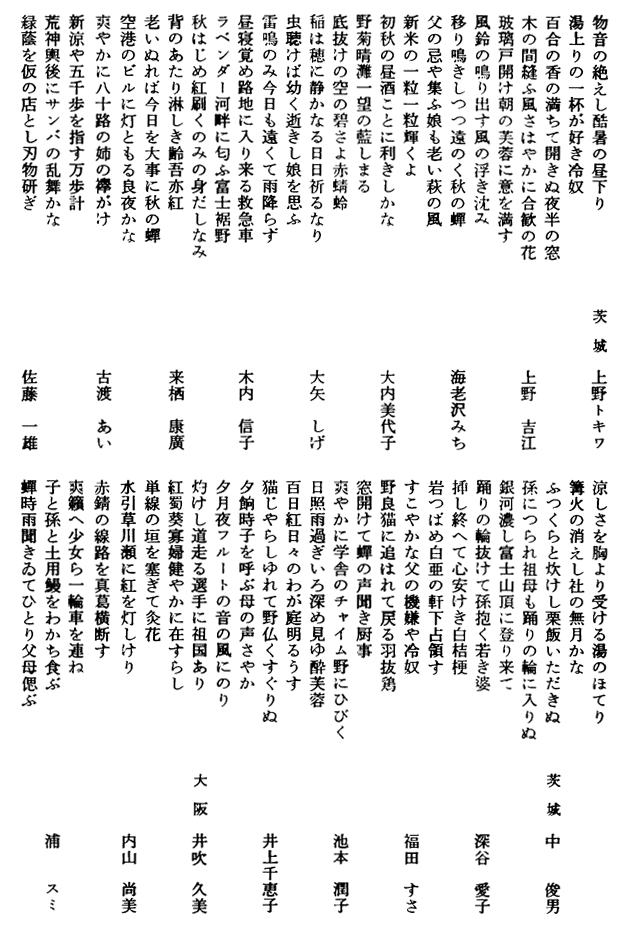 物音の絶えし酷暑の昼下り
湯上りの一杯が好き冷奴
百合の香の満ちて開きぬ夜半の窓
茨城 上野トキワ
木の間縫ふ風さはやかに合歓の花
玻璃戸開け朝の芙蓉に意を満す
風鈴の鳴り出す風の浮き沈み
上野 吉江
移り鳴きしつつ遠のく秋の蟬
父の忌や集ふ娘も老い萩の風
新米の一粒一粒輝くよ
海老沢みち
初秋の昼酒ことに利きしかな
野菊晴灘一望の藍しまる
底抜けの空の碧さよ赤蜻蛉
大内美代子
稲は穂に静かなる日日祈るなり
虫聴けば幼く逝きし娘を思ふ
雷鳴のみ今日も遠くて雨降らず
大矢 しげ
昼寝覚め路地に入り来る救急車
ラベンダー河畔に匂ふ富士裾野
秋はじめ紅刷くのみの身だしなみ
木内 信子
背のあたり淋しき齢吾亦紅
老いぬれば今日を大事に秋の蟬
空港のビルに灯ともる良夜かな
来栖 康廣
爽やかに八十路の姉の襷がけ
新涼や五千歩を指す万歩計
荒神輿後にサンバの乱舞かな
古渡 あい
緑蔭を仮の店とし刃物研ぎ
佐藤 一雄
涼しさを胸より受ける湯のほてり
篝火の消えし社の無月かな
ふつくらと炊けし栗飯いただきぬ
茨城 中 俊男
孫につられ祖母も踊りの輪に入りぬ
銀河濃し富士山頂に登り来て
踊りの輪抜けて孫抱く若き婆
深谷 愛子
挿し終へて心安けき白桔梗
岩つばめ白亜の軒下占領す
すこやかな父の機嫌や冷奴
福田 すさ
野良猫に追はれて戻る羽抜鶏
窓開けて蟬の声聞き厨事
爽やかに学舎のチャイム野にひびく
池本 潤子
日照雨過ぎいろ深め見ゆ酔芙蓉
百日紅日々のわが庭明るうす
猫じやらしゆれて野仏くすぐりぬ
井上千恵子
夕餉時子を呼ぶ母の声さやか
夕月夜フルートの音の風にのり
灼けし道走る選手に祖国あり
大阪 井吹 久美
紅蜀葵寡婦健やかに在すらし
単線の垣を塞ぎて灸花
水引草川瀬に紅を灯しけり
内山 尚美
赤錆の線路を真葛横断す
爽籟へ少女ら一輪車を連ね
子と孫と土用鰻をわかち食ぶ
浦 スミ
蟬時雨聞きゐてひとり父母偲ぶ